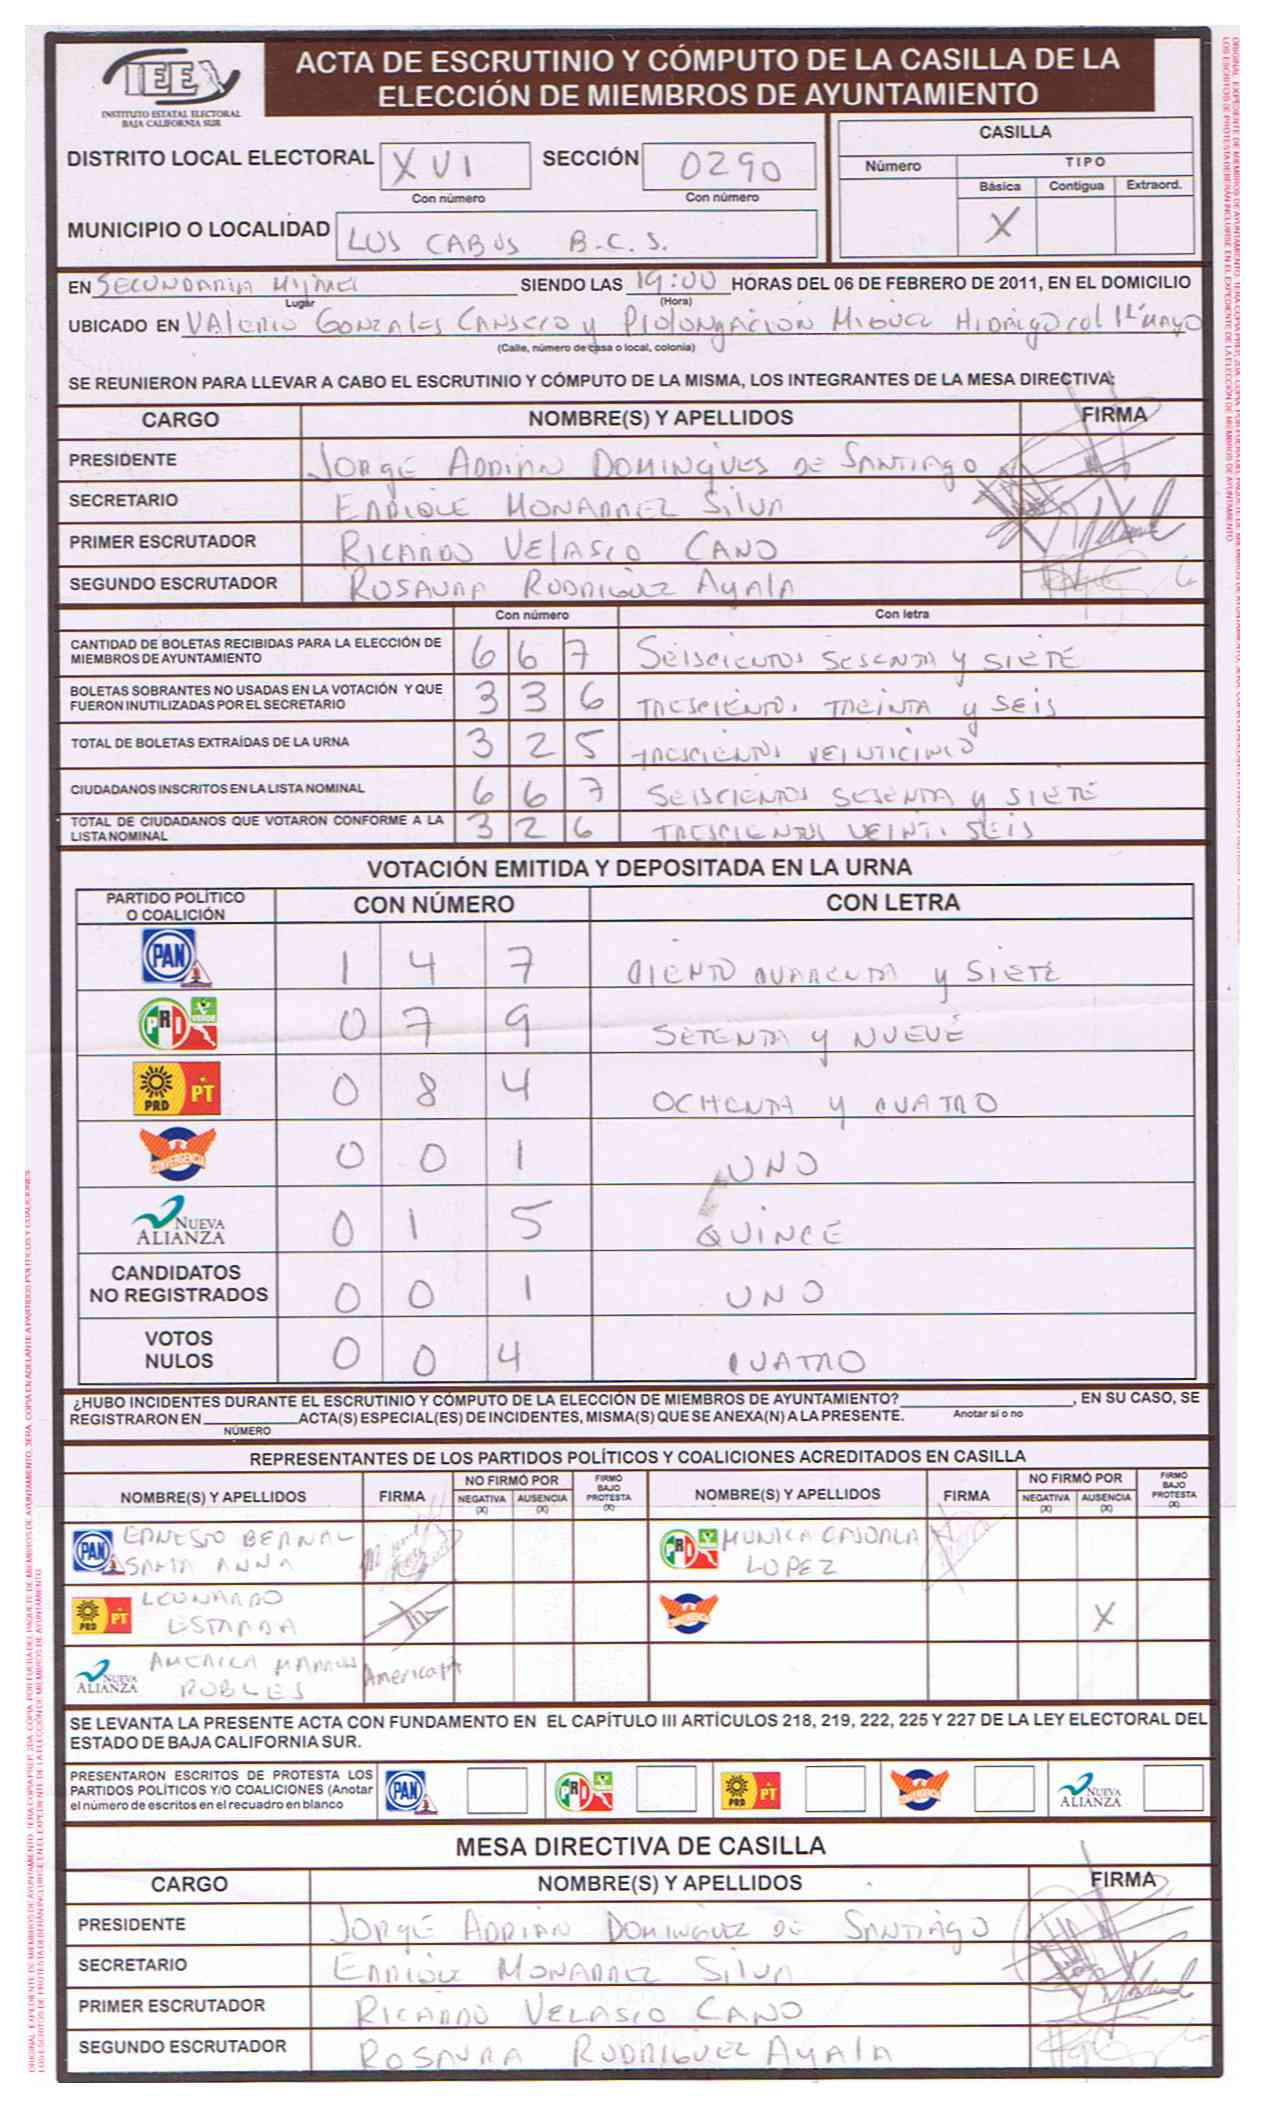 IEE
INSTITUTO ESTATAL ELECTORAL
BAJA CALIFORNIA SUR
ACTA DE ESCRUTINIO Y CÓMPUTO DE LA CASILLA DE LA
ELECCIÓN DE MIEMBROS DE AYUNTAMIENTO
DISTRITO LOCAL ELECTORAL XVI SECCIÓN 0290
Con número Con número
MUNICIPIO O LOCALIDAD LOS CABOS B.C.S.
CASILLA
Número TIPO
Básica Contigua Extraord.
X
EN SECUNDARIA SIENDO LAS 19:00 HORAS DEL 06 DE FEBRERO DE 2011, EN EL DOMICILIO
Lugar (Hora)
UBICADO EN VAlerio GONZALES CANSECO y PROLONGACIÓN MIGUEL HIDALGO col 1º MAYO
(Calle, número de casa o local, colonia)
SE REUNIERON PARA LLEVAR A CABO EL ESCRUTINIO Y CÓMPUTO DE LA MISMA, LOS INTEGRANTES DE LA MESA DIRECTIVA:
CARGO NOMBRE(S) Y APELLIDOS FIRMA
PRESIDENTE JORGE ADRIAN DOMINGUES DE SANTIAGO
SECRETARIO ENRIQUE MONARREZ SILVA
PRIMER ESCRUTADOR RICARDO VELASCO CANO
SEGUNDO ESCRUTADOR ROSAURA RODRIGUEZ AYALA
Con número Con letra
CANTIDAD DE BOLETAS RECIBIDAS PARA LA ELECCIÓN DE
MIEMBROS DE AYUNTAMIENTO 6 6 7 SEISCIENTOS SESENTA y SIETE
BOLETAS SOBRANTES NO USADAS EN LA VOTACIÓN Y QUE
FUERON INUTILIZADAS POR EL SECRETARIO 3 3 6 TRESCIENTOS TREINTA y SEIS
TOTAL DE BOLETAS EXTRAÍDAS DE LA URNA 3 2 5 TRESCIENTOS VEINTICINCO
CIUDADANOS INSCRITOS EN LA LISTA NOMINAL 6 6 7 SEISCIENTOS SESENTA y SIETE
TOTAL DE CIUDADANOS QUE VOTARON CONFORME A LA
LISTA NOMINAL 3 2 6 TRESCIENTOS VEINTI SEIS
VOTACIÓN EMITIDA Y DEPOSITADA EN LA URNA
PARTIDO POLÍTICO
O COALICIÓN CON NÚMERO CON LETRA
PAN 1 4 7 CIENTO CUARENTA y SIETE
PRI VERDE 0 7 9 SETENTA y NUEVE
PRD PT 0 8 4 OCHENTA y CUATRO
CONVERGENCIA 0 0 1 UNO
NUEVA ALIANZA 0 1 5 QUINCE
CANDIDATOS
NO REGISTRADOS 0 0 1 UNO
VOTOS
NULOS 0 0 4 CUATRO
¿HUBO INCIDENTES DURANTE EL ESCRUTINIO Y CÓMPUTO DE LA ELECCIÓN DE MIEMBROS DE AYUNTAMIENTO? , EN SU CASO, SE
REGISTRARON EN ACTA(S) ESPECIAL(ES) DE INCIDENTES, MISMA(S) QUE SE ANEXA(N) A LA PRESENTE. Anotar sí o no
NÚMERO
REPRESENTANTES DE LOS PARTIDOS POLÍTICOS Y COALICIONES ACREDITADOS EN CASILLA
NOMBRE(S) Y APELLIDOS FIRMA NO FIRMÓ POR NEGATIVA (X) AUSENCIA (X) FIRMÓ BAJO PROTESTA (X) NOMBRE(S) Y APELLIDOS FIRMA NO FIRMÓ POR NEGATIVA (X) AUSENCIA (X) FIRMÓ BAJO PROTESTA (X)
PAN ERNESTO BERNAL PRI MONICA
SANTA ANNA LOPEZ
PRD PT LEONARDO CONVERGENCIA X
ESTRADA
NUEVA ALIANZA AMERICA America
ROBLES
SE LEVANTA LA PRESENTE ACTA CON FUNDAMENTO EN EL CAPÍTULO III ARTÍCULOS 218, 219, 222, 225 Y 227 DE LA LEY ELECTORAL DEL
ESTADO DE BAJA CALIFORNIA SUR.
PRESENTARON ESCRITOS DE PROTESTA LOS
PARTIDOS POLÍTICOS Y/O COALICIONES (Anotar
el número de escritos en el recuadro en blanco
PAN PRI PRD PT CONVERGENCIA NUEVA ALIANZA
MESA DIRECTIVA DE CASILLA
CARGO NOMBRE(S) Y APELLIDOS FIRMA
PRESIDENTE JORGE ADRIAN DOMINGUEZ DE SANTIAGO
SECRETARIO ENRIQUE MONARREZ SILVA
PRIMER ESCRUTADOR RICARDO VELASCO CANO
SEGUNDO ESCRUTADOR ROSAURA RODRIGUEZ AYALA